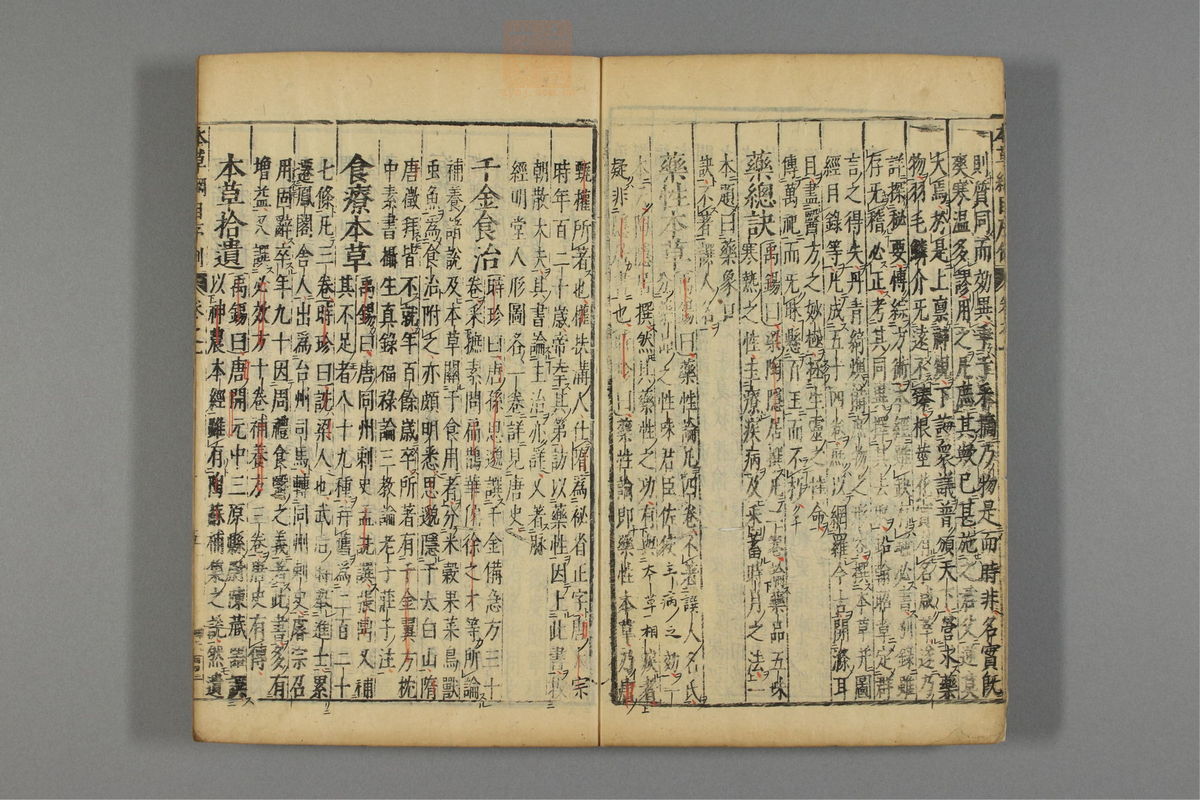 則質同而效異乖於采摘乃物是而時非名實旣
爽寒溫多謬用之凡庶其欺已甚施之君父逆莫
大焉於是上禀神規下詢衆議普頒天下營求藥
物羽毛鱗介无遠不臻根莖花實有名咸萃遂乃
詳探秘要博綜方術本經雖缺有驗必書別錄雖
存无稽必正考其同異擇其去取鉛翰昭章定群
言之得失丹青綺煥備庶物之形容撰本草幷圖
經目錄等凡成五十四卷庶以網羅今古開滌耳
目盡醫方之妙極拯生靈之性命
傳萬祀而无昧懸百王而不朽
藥總訣禹錫曰梁陶隱居撰凡二卷論藥品五味
寒熱之性主療疾病及采蓄時月之法一
本題曰藥象口
訣不著撰人名
藥性本草禹錫曰藥性論凡四卷不著撰人名氏
撰然所 性味君臣佐使主病之效
藥性之功有與本草相戾者
疑非 也 曰藥性論卽藥性本草乃唐
甄權所著也權扶溝人仕隋爲秘省正字唐太宗
時年百二十歲帝幸其第訪以藥性因上此書授
朝散大夫其書論主治亦詳又著脉
經明堂人形圖各一卷詳見唐史
千金食治時珍曰唐孫思邈撰千金備急方三十
卷采摭素問扁鵲華佗徐之才等所論
補養諸說及本草關于食用者分米穀果菜鳥獸
虫魚爲食治附之亦頗明悉思邈隱于太白山隋
唐徵拜皆不就年百餘歲卒所著有千金翼方枕
中素書攝生真錄福祿論三教論老子莊子注
食療本草禹錫曰唐同州刺史孟詵撰張鼎又補
其不足者八十九種幷舊爲二百二十
七條凡三卷時珍曰詵梁人也武后時舉進士累
遷鳳閣舍人出爲台州司馬轉同州刺史睿宗召
用固辭卒年九十因周禮食醫之義著此書多有
增益又撰必效方十卷補養方三卷唐史有傳
本草拾遺禹錫曰唐開元中三原縣尉陳藏器撰
以神農本經雖有陶蘇補集之說然遺